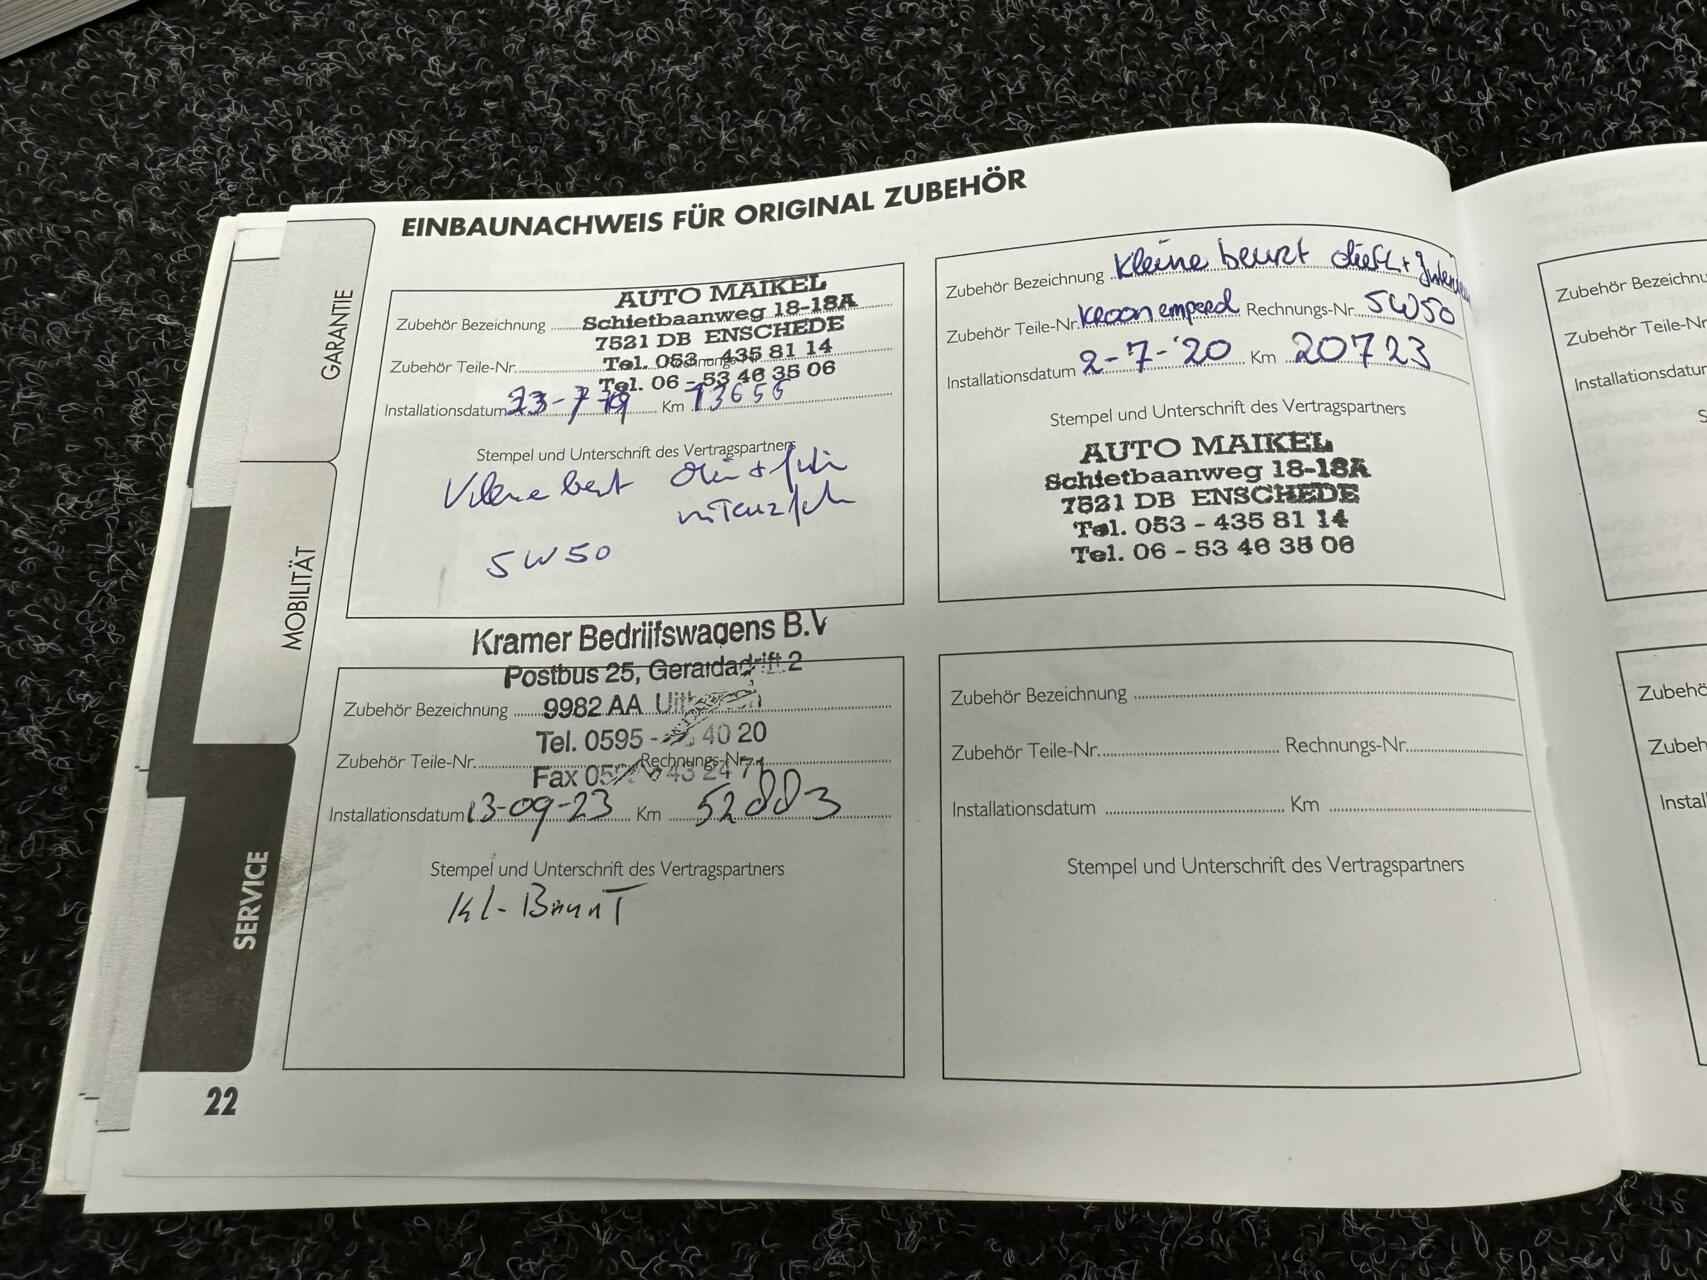 EINBAUNACHWEIS FÜR ORIGINAL ZUBEHÖR
GARANTIE
MOBILITÄT
SERVICE
AUTO MAIKEL
Schietbaanweg 18-18A
7521 DB ENSCHEDE
Tel. 053 - 435 81 14
Tel. 06 - 53 46 35 06
Zubehör Bezeichnung
Zubehör Teile-Nr.
Installationsdatum Km 13656
Stempel und Unterschrift des Vertragspartners
5W50
Zubehör Bezeichnung Kleine beurt
Zubehör Teile-Nr. Rechnungs-Nr. 5W50
Installationsdatum 2-7-'20 Km 20723
Stempel und Unterschrift des Vertragspartners
AUTO MAIKEL
Schietbaanweg 18-18A
7521 DB ENSCHEDE
Tel. 053 - 435 81 14
Tel. 06 - 53 46 35 06
Kramer Bedrijfswagens B.V
Postbus 25, Geraldadrift 2
Zubehör Bezeichnung 9982 AA
Tel. 0595 - 40 20
Zubehör Teile-Nr. Rechnungs-Nr.
Fax 43 24 71
Installationsdatum 13-09-23 Km 52003
Stempel und Unterschrift des Vertragspartners
Kl-Beurt
Zubehör Bezeichnung
Zubehör Teile-Nr. Rechnungs-Nr.
Installationsdatum Km
Stempel und Unterschrift des Vertragspartners
22
Zubehör Bezeichnu
Zubehör Teile-Nr
Installationsdatu
S
Zubehö
Zubeh
Instal